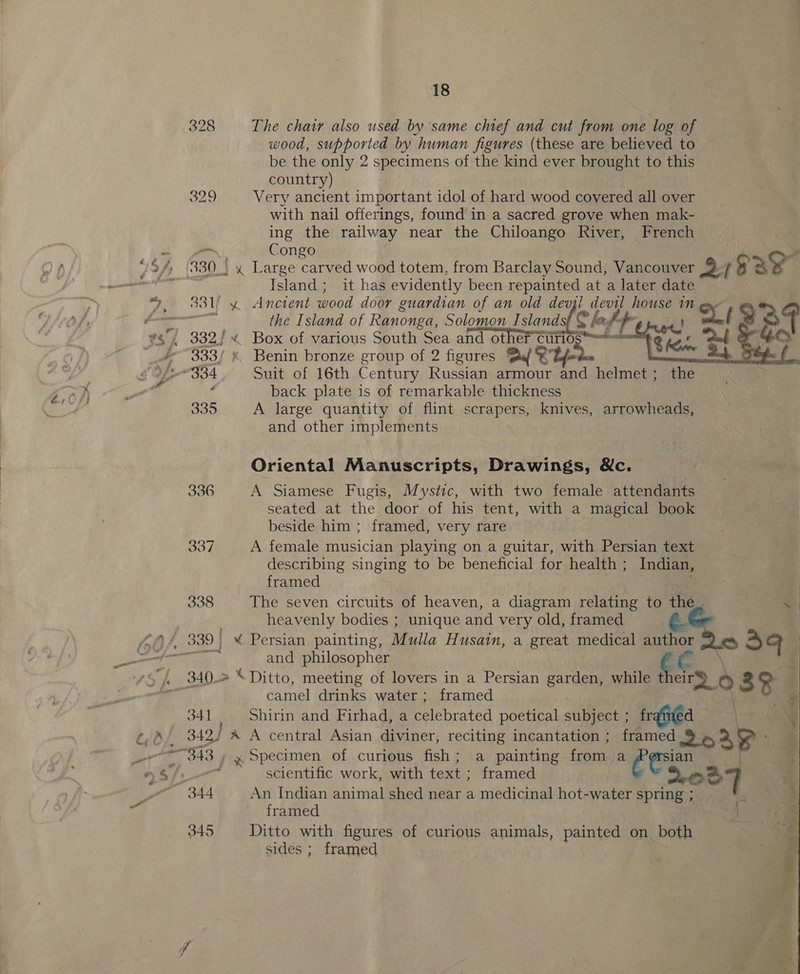 18
328 The chair also used by same chief and cut from one log of
wood, supported by human figures (these are believed to
be the only 2 specimens of the kind ever brought to this
country)
329 Very ancient important idol of hard wood covered all over
with nail offerings, found in a sacred grove when mak-
ing the railway near the Chiloango River, French
Congo
330 Large carved wood totem, from Barclay Sound, Vancouver
Island ; it has evidently been repainted at a later date
331 Ancient wood door guardian of an old devil devil house in
the Island of Ranonga, Solomon Islands
332 Box of various South Sea and other curios
333 Benin bronze group of 2 figures
334 Suit of 16th Century Russian armour and helmet ; the
back plate is of remarkable thickness
335 A large quantity of flint scrapers, knives, arrowheads,
and other implements
Oriental Manuscripts, Drawings, &c.
336 A Siamese Fugis, Mystic, with two female attendants
seated at the door of his tent, with a magical book
beside him ; framed, very rare
337 A female musician playing on a guitar, with Persian text
describing singing to be beneficial for health ; Indian,
framed
338 The seven circuits of heaven, a diagram relating to the
heavenly bodies ; unique and very old, framed
339 Persian painting, Mulla Husain, a great medical author
and philosopher
340 Ditto, meeting of lovers in a Persian garden, while their
camel drinks water ; framed
341 Shirin and Firhad, a celebrated poetical subject ; framed
342 A central Asian diviner, reciting incantation ; framed
343 Specimen of curious fish ; a painting from a Persian
scientific work, with text ; framed
344 An Indian animal shed near a medicinal hot-water spring ;
framed
345 Ditto with figures of curious animals, painted on both
sides ; framed